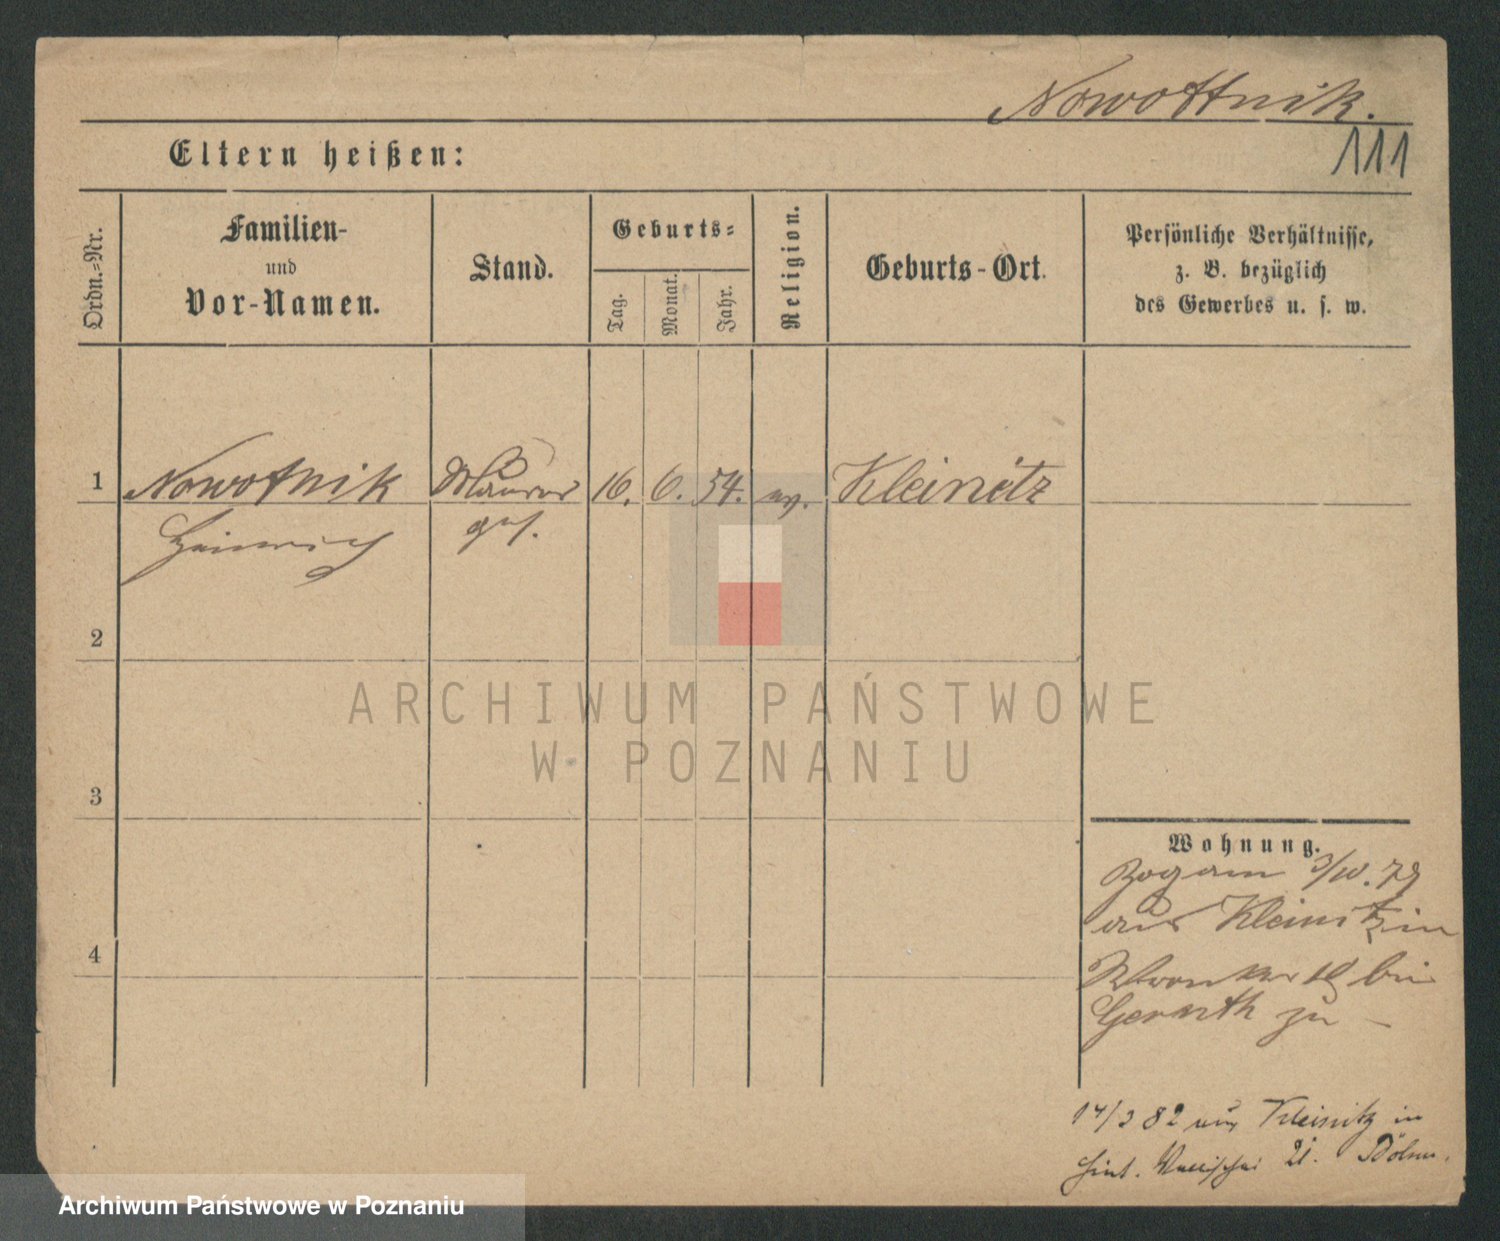 Nowottnik.
111
Eltern heißen:
Ordn.=Nr.
Familien-
und
Vor-Namen.
Stand.
Geburts=
Tag.
Monat.
Jahr.
Religion.
Geburts-Ort.
Persönliche Verhältnisse,
z. B. bezüglich
des Gewerbes u. s. w.
1 Nowotnik Maurer 16. 6. 54. ev. Kleinitz
Heinrich ges.
2
ARCHIWUM PAŃSTWOWE
W POZNANIU
3
Wohnung.
Zog am 3/10. 79
aus Kleinitz in
Wronker 10 bei
Gerarth zu –
4
14/3 82 aus Kleinitz in
21.
Archiwum Państwowe w Poznaniu